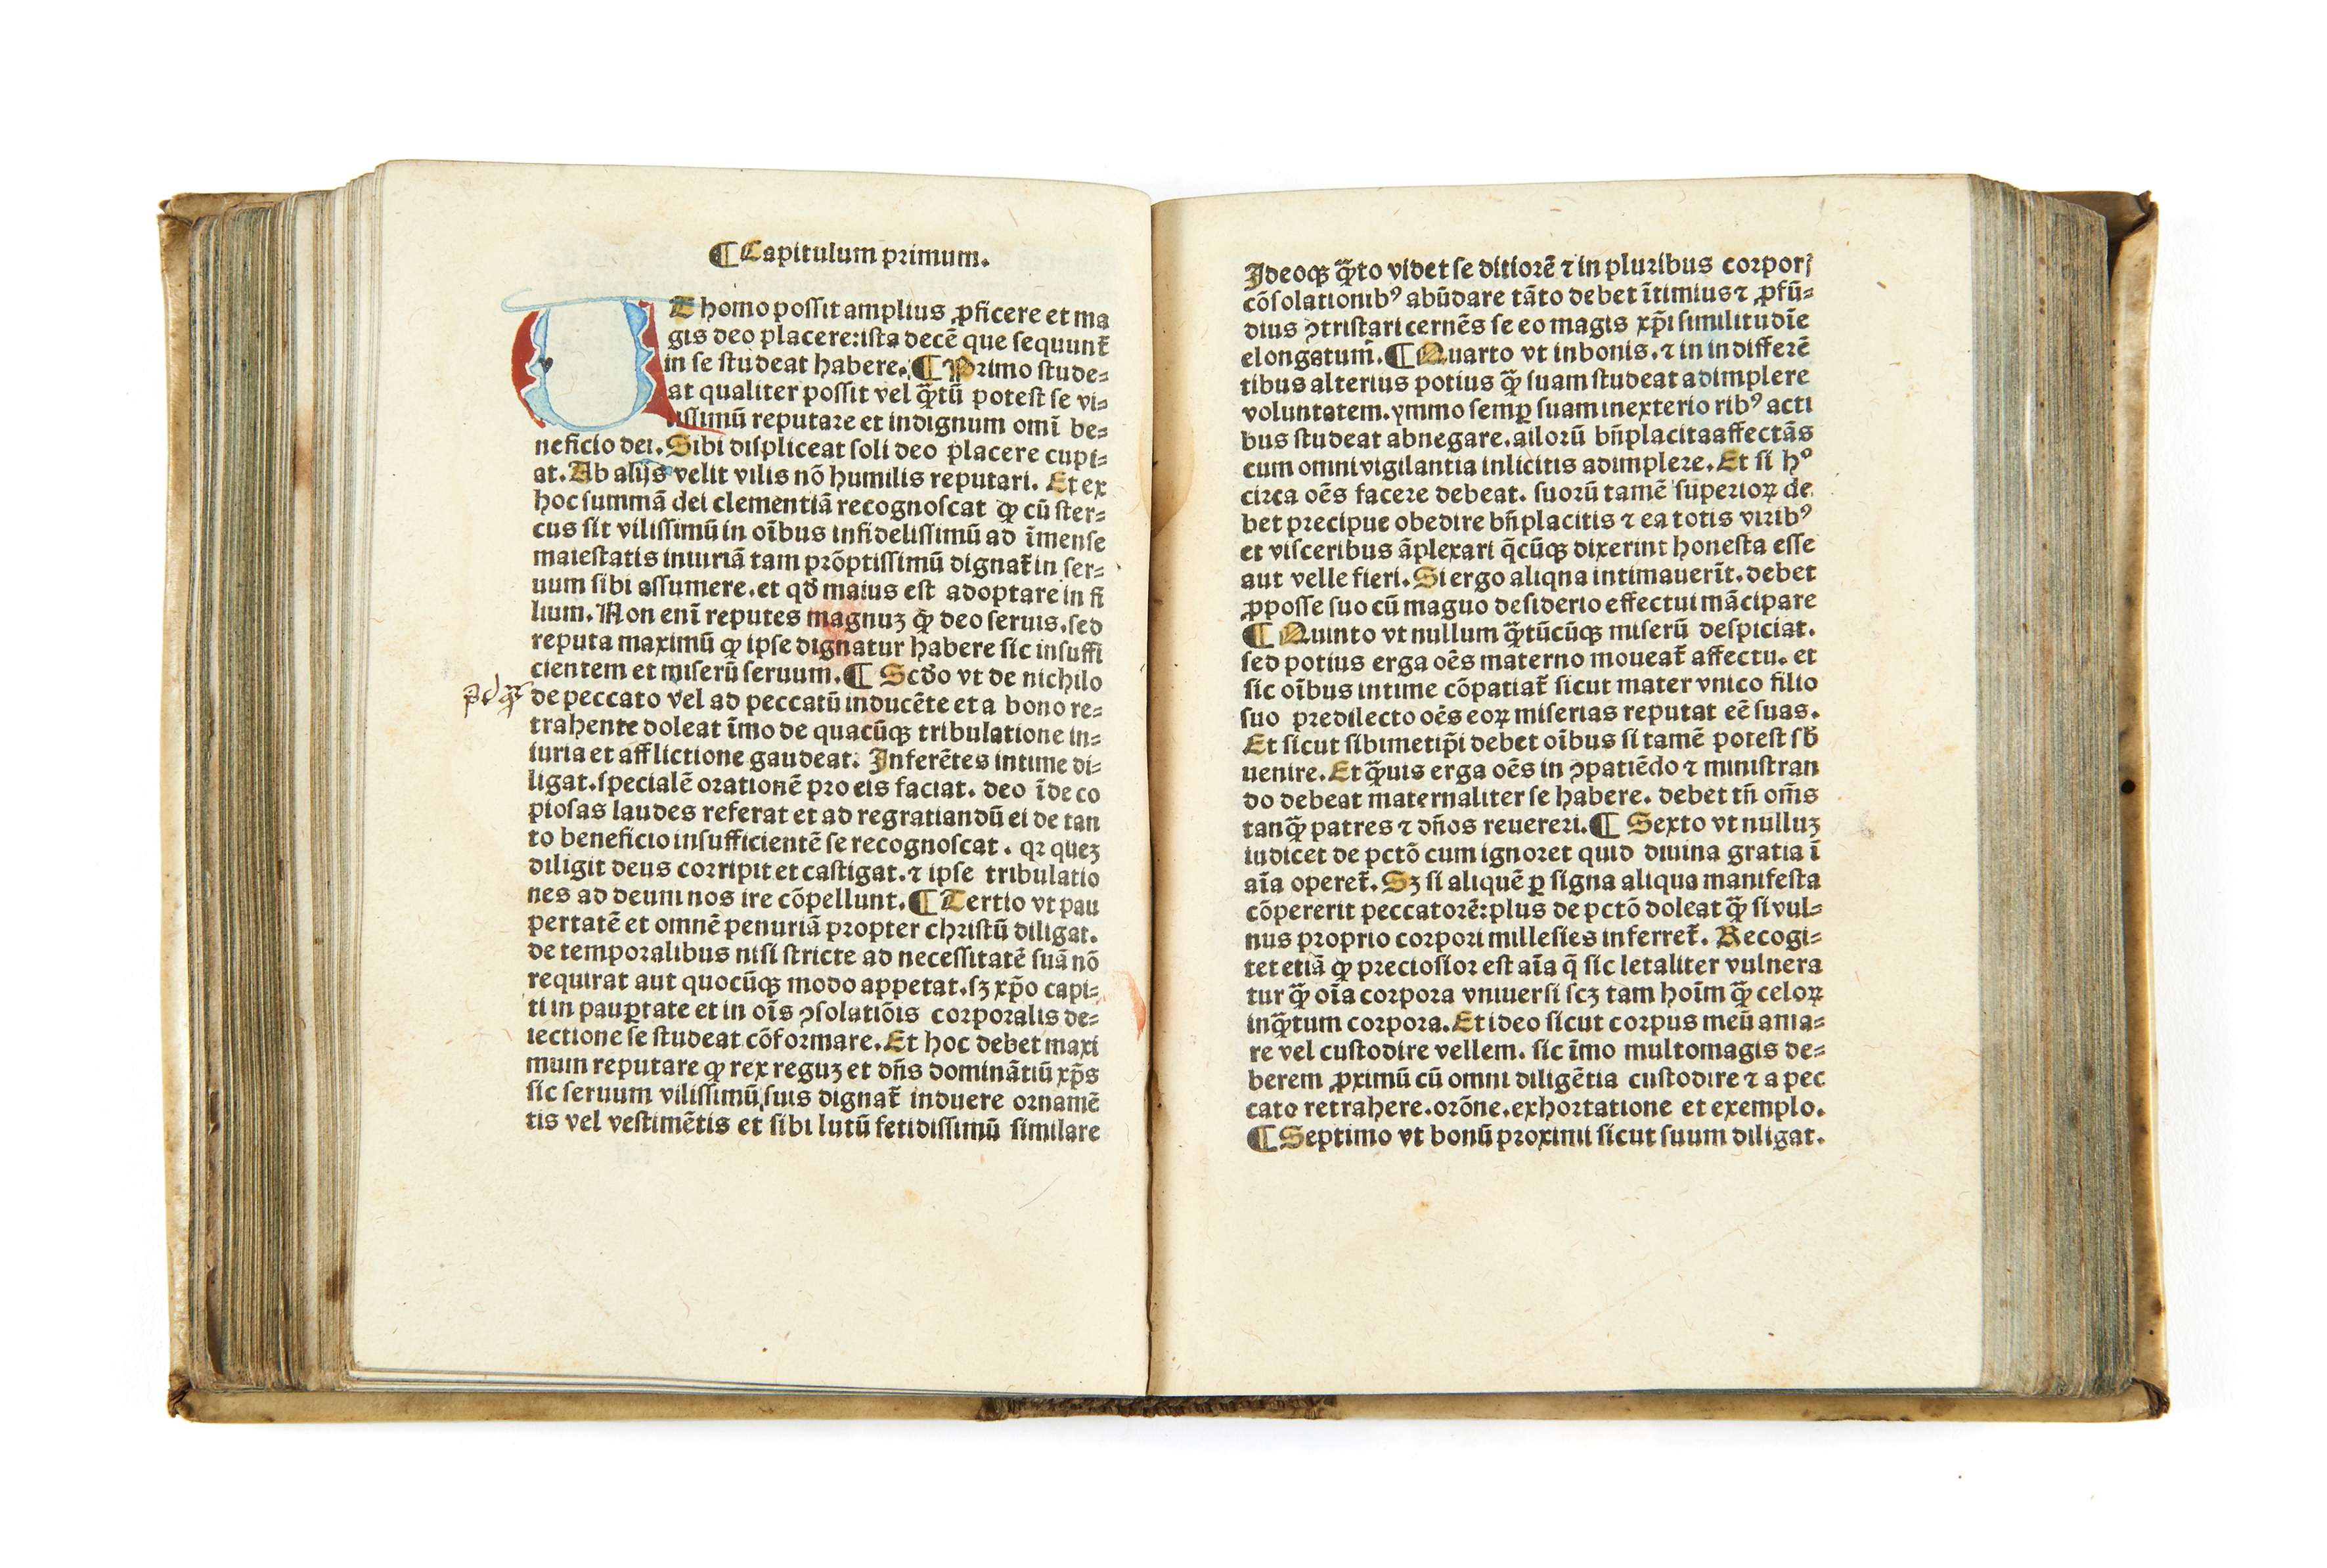 ¶ Capitulum primum.
UT homo possit amplius ꝓficere et ma
gis deo placere: ista decē que sequunt̄
in se studeat habere. ¶ Primo stude⸗
at qualiter possit vel q̄tū potest se vi⸗
lissimū reputare et indignum omī be⸗
neficio dei. Sibi displiceat soli deo placere cupi⸗
at. Ab alijs velit vilis nō humilis reputari. Et ex
hoc summā dei clementiā recognoscat ꝙ cū ster⸗
cus sit vilissimū in oībus infidelissimū ad īmense
maiestatis iniuriā tam prōptissimū dignat̄ in ser⸗
uum sibi assumere. et qđ maius est adoptare in fi
lium. Non enī reputes magnuꝫ ꝙ̄ deo seruis. sed
reputa maximū ꝙ ipse dignatur habere sic insuffi
cientem et miserū seruum. ¶ Scđo vt de nichilo
de peccato vel ad peccatū inducēte et a bono re⸗
trahente doleat īmo de quacūqꝫ tribulatione in⸗
iuria et afflictione gaudeat. Inferētes intime di⸗
ligat. specialē orationē pro eis faciat. deo īde co
piosas laudes referat et ad regratiandū ei de tan
to beneficio insufficientē se recognoscat. qꝛ queꝫ
diligit deus corripit et castigat. ⁊ ipse tribulatio
nes ad deum nos ire cōpellunt. ¶ Tertio vt pau
pertatē et omnē penuriā propter christū diligat.
de temporalibus nisi stricte ad necessitatē suā nō
requirat aut quocūqꝫ modo appetat. sꝫ xp̄o capi⸗
ti in paupertate et in oīs ꝯsolatiōis corporalis de⸗
iectione se studeat cōformare. Et hoc debet maxi
mum reputare ꝙ rex reguꝫ et dn̄s dominātiū xp̄s
sic seruum vilissimū suis dignat̄ induere ornamē
tis vel vestimētis et sibi lutū fetidissimū similare
Ideoqꝫ q̄to videt se ditiorē ⁊ in pluribus corporꝭ
cōsolationibꝰ abūdare tāto debet ītimius ⁊ ꝓfū⸗
dius ꝯtristari cernēs se eo magis xp̄i similitudīe
elongatum. ¶ Quarto vt in bonis. ⁊ in indifferē
tibus alterius potius q̄ꝫ suam studeat adimplere
voluntatem. ymmo semꝑ suam in exterioribꝰ acti
bus studeat abnegare. ailorū bn̄placita affectās
cum omni vigilantia in licitis adimplere. Et si hº
circa oēs facere debeat. suorū tamē superioꝝ de
bet precipue obedire bn̄placitis ⁊ ea totis viribꝰ
et visceribus āplexari q̄cūqꝫ dixerint honesta esse
aut velle fieri. Si ergo aliqna intimauerīt. debet
ꝓposse suo cū maguo desiderio effectui mācipare
¶ Quinto vt nullum q̄tūcūqꝫ miserū despiciat.
sed potius erga oēs materno moueat̄ affectu. et
sic oībus intime cōpatiat̄ sicut mater vnico filio
suo predilecto oēs eoꝝ miserias reputat eē suas.
Et sicut sibimetip̄i debet oībus si tamē potest sƀ
uenire. Et q̄uis erga oēs in ꝯpatiēdo ⁊ ministran
do debeat maternaliter se habere. debet tn̄ om̄s
tanq̄ patres ⁊ dn̄os reuereri. ¶ Sexto vt nulluꝫ
iudicet de pctō cum ignoret quid diuina gratia ī
aīa operet̄. Sꝫ si aliquē ꝑ signa aliqua manifesta
cōpererit peccatorē: plus de pctō doleat q̄ si vul⸗
nus proprio corpori millesies inferret̄. Recogi⸗
tet etiā ꝙ preciosior est aīa q̄ sic letaliter vulnera
tur q̄ oīa corpora vniuersi scꝫ tam hoīm q̄ celoꝝ
inq̄tum corpora. Et ideo sicut corpus meū ama⸗
re vel custodire vellem. sic īmo multomagis de⸗
berem ꝓximū cū omni diligētia custodire ⁊ a pec
cato retrahere. orōne. exhortatione et exemplo.
¶ Septimo vt bonū proximi sicut suum diligat.